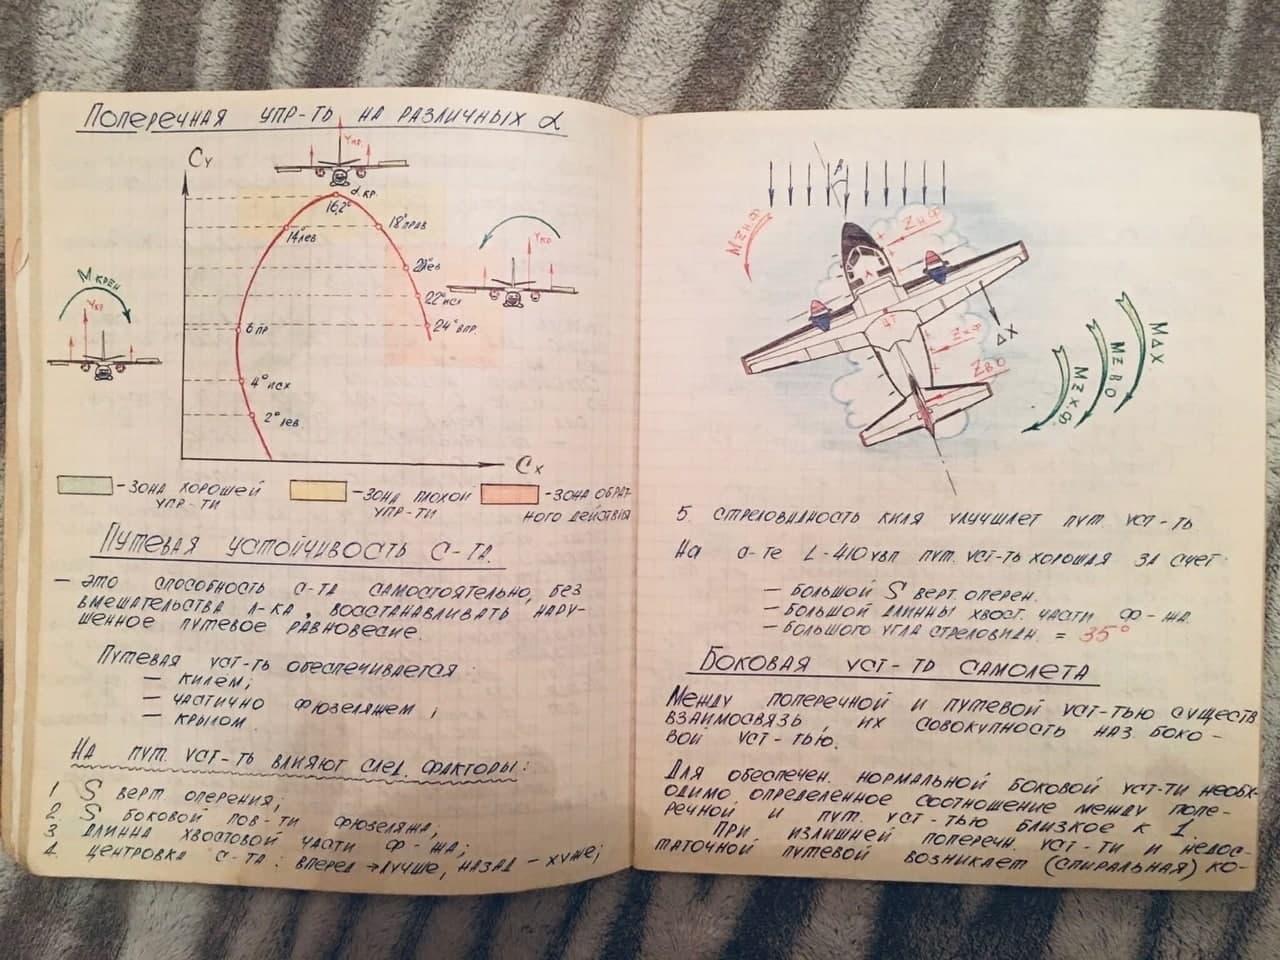 Поперечная упр-ть на различных α
Cy
Yкр.
α кр.
16,2°
14° лев
18° прав
20° лев
22° исх
24° впр.
6 пр
4° исх
2° лев
Cx
М крен
Yкр
Yкр
- зона хорошей
упр-ти
- зона плохой
упр-ти
- зона обрат-
ного действия
Путевая устойчивость с-та.
– это способность с-та самостоятельно, без
вмешательства л-ка, восстанавливать нару-
шенное путевое равновесие.
Путевая уст-ть обеспечивается:
– килем;
– частично фюзеляжем;
– крылом.
На пут. уст-ть влияют след. факторы:
1 S верт. оперения;
2. S боковой пов-ти фюзеляжа;
3 длинна хвостовой части ф-жа;
4. центровка с-та: вперед → лучше, назад – хуже;
β
MZн.ф
Zн.ф
ΔX
Zх.ф
Zв.о
МΔХ
MZВО
MZХ.Ф.
5. стреловидность киля улучшлет пут. уст-ть
На с-те L-410 увп пут. уст-ть хорошая за счет:
– большой S верт. оперен.
– большой длинны хвост. части ф-жа.
– большого угла стреловидн. = 35°
Боковая уст-ть самолета
Между поперечной и путевой уст-тью существ
взаимосвязь, их совокупность наз. боко-
вой уст-тью.
Для обеспечен. нормальной боковой уст-ти необх-
одимо определенное соотношение между попе-
речной и пут. уст-тью близкое к 1.
При излишней поперечн. уст-ти и недос-
таточной путевой возникает (спиральная) ко-